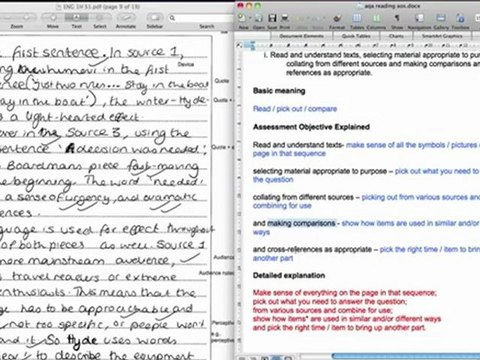 ENG 1H S1.pdf (page 9 of 19)
first sentence. In source 1,
Device
humour in the first
Quote
('just two runs... stay in the boat
Quote
in the boat'), the writer Hyde
a light-hearted effect.
in Source 3, using the
sentence 'A decision was needed',
Boardmans piece fast-moving
the beginning. The word 'needed'
a sense of urgency, and dramatic
is used for effect throughout
of both pieces as well. Source 1
more mainstream audience,
Audience
travel readers or extreme
Audience note
enthusiasts. This means that the
has to be approachable and
not too specific, or people wont
Perceptive
and it. So Hyde uses words
to describe the equipment
aqa reading aos.docx
Document Elements
Quick Tables
Charts
SmartArt Graphics
i. Read and understand texts, selecting material appropriate to purpose
collating from different sources and making comparisons and
references as appropriate.
Basic meaning
Read / pick out / compare
Assessment Objective Explained
Read and understand texts- make sense of all the symbols / pictures
page in that sequence
selecting material appropriate to purpose – pick out what you need to
the question
collating from different sources – picking out from various sources and
combining for use
and making comparisons - show how items are used in similar and/or
ways
and cross-references as appropriate – pick the right time / item to bring
another part
Detailed explanation
Make sense of everything on the page in that sequence;
pick out what you need to answer the question;
from various sources and combine for use;
show how items* are used in similar and/or different ways
and pick the right time / item to bring up another part.